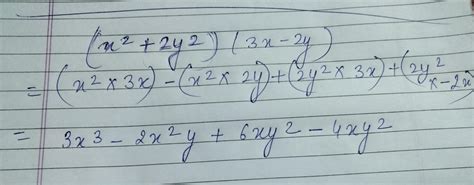 (x² + 2y²) (3x - 2y)
= (x² × 3x) - (x² × 2y) + (2y² × 3x) + (2y² × -2x)
= 3x3 - 2x²y + 6xy² - 4xy²